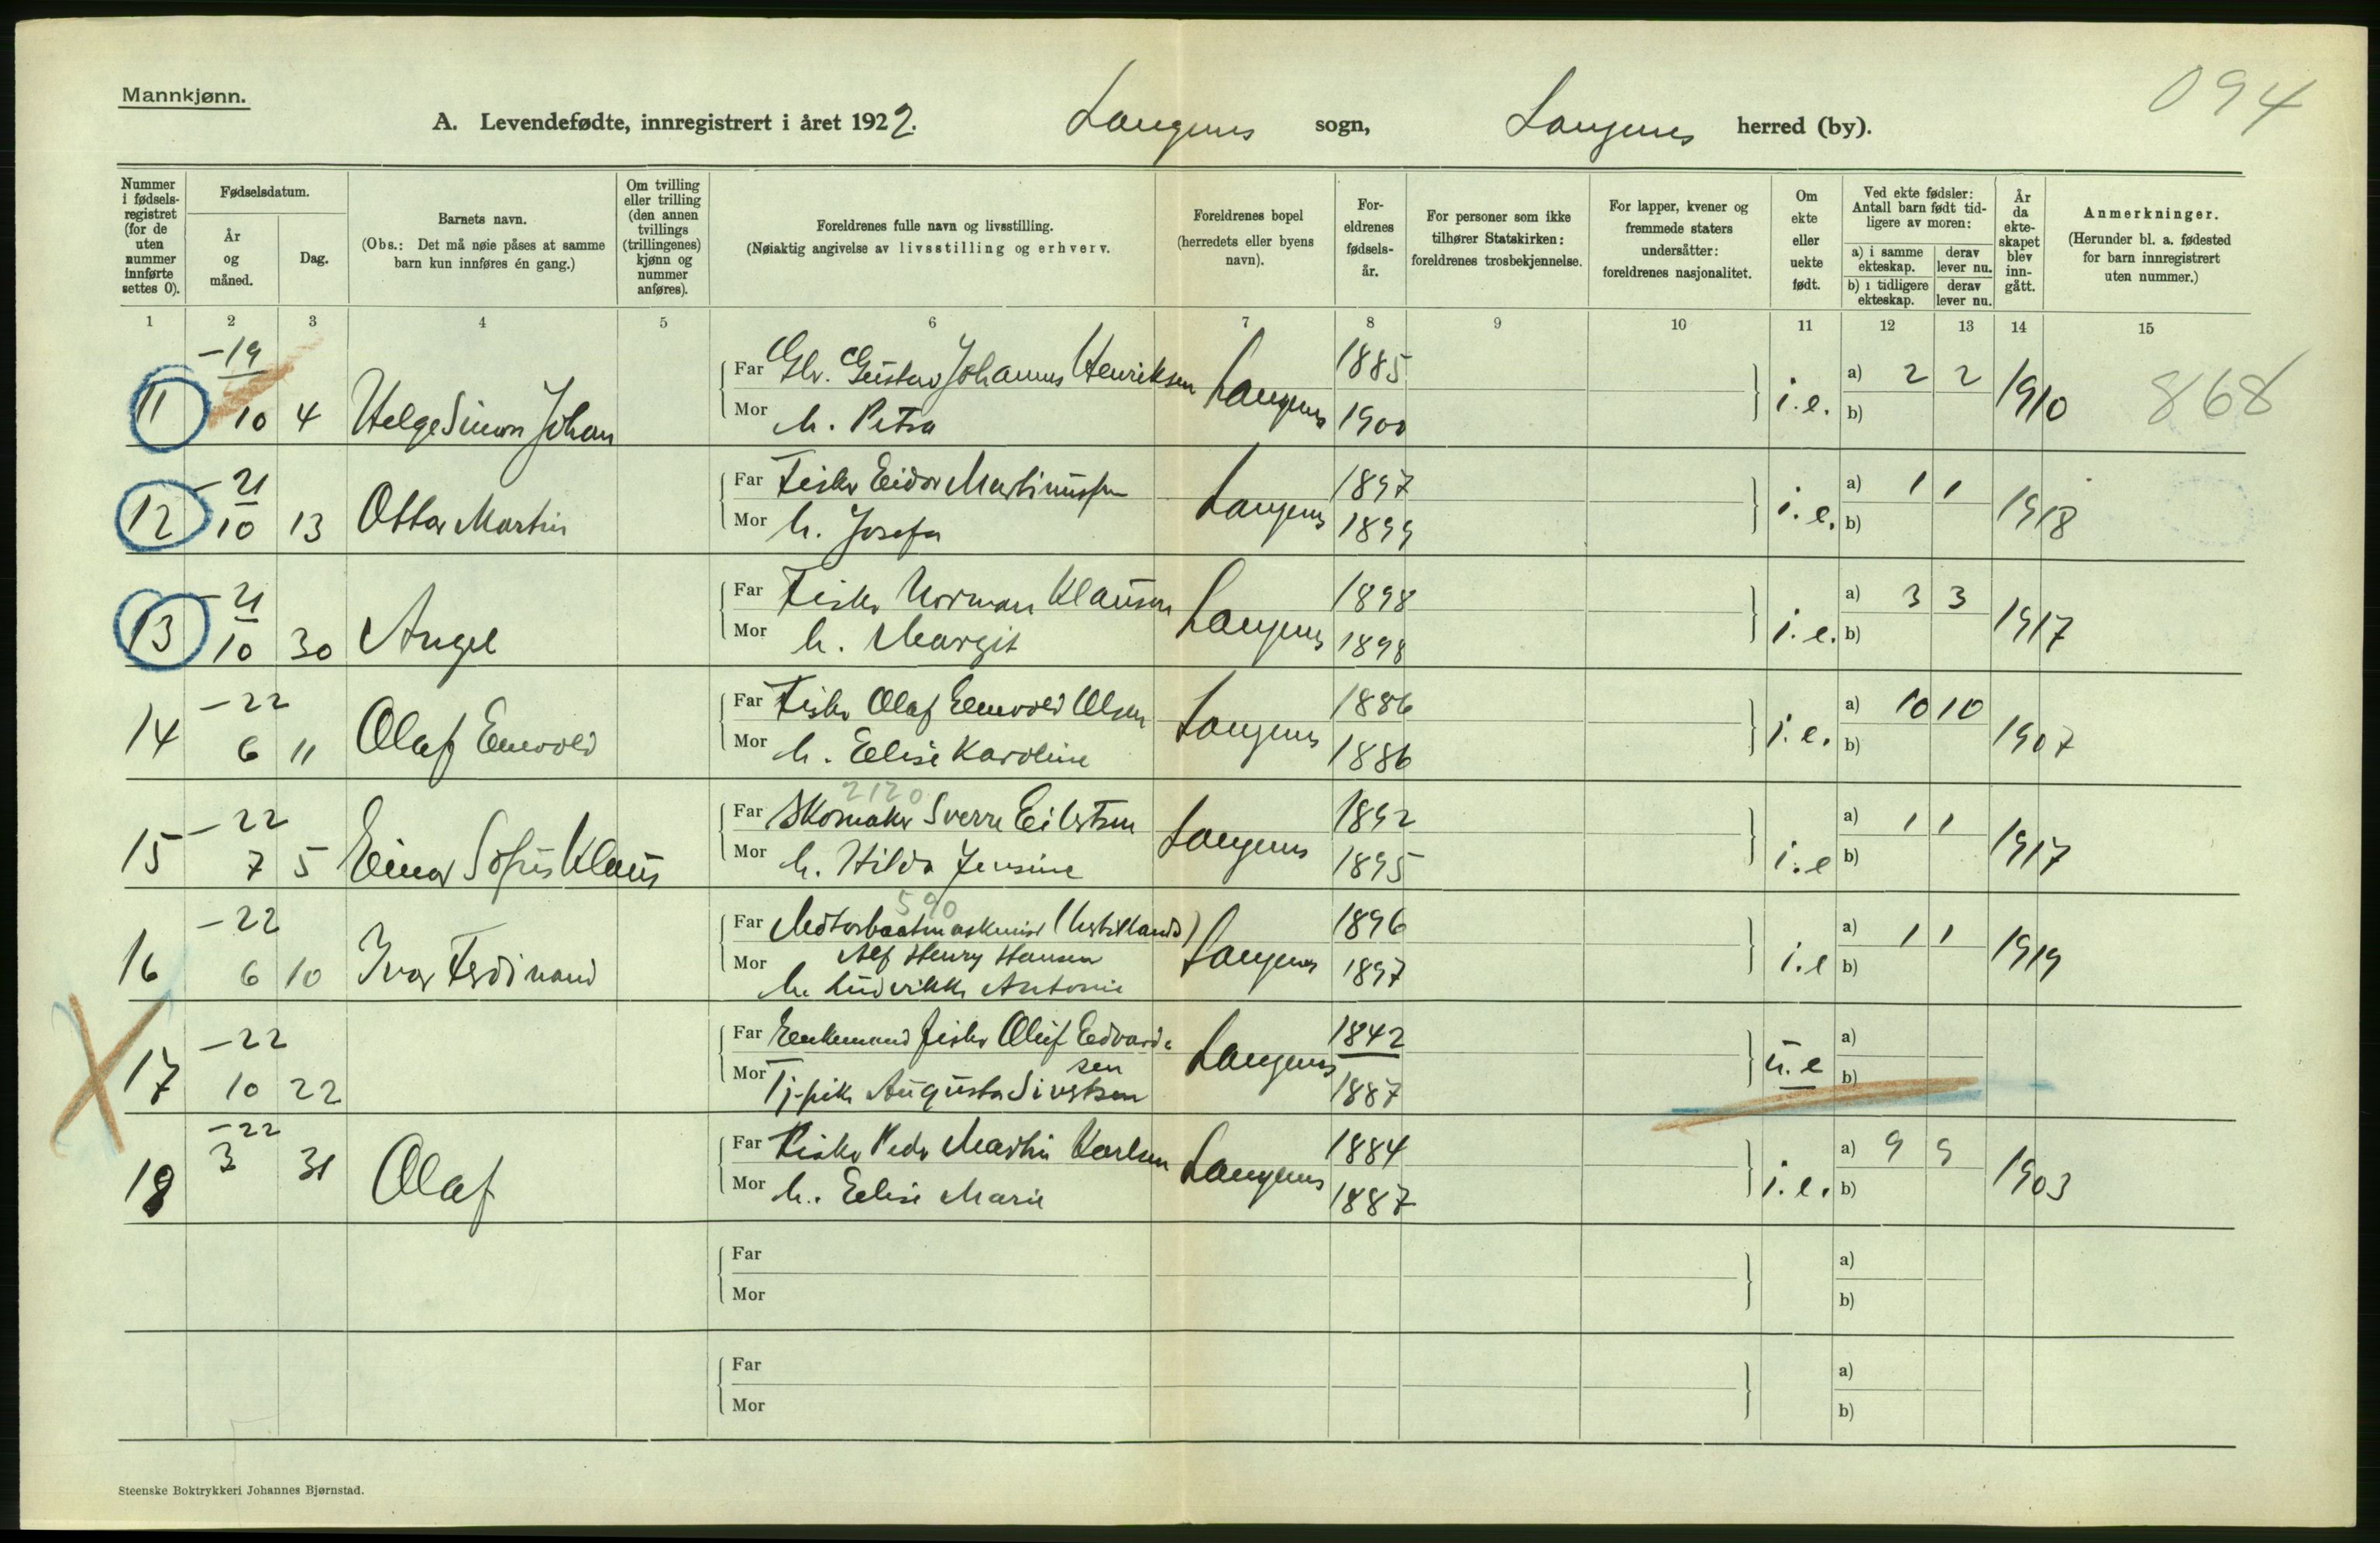 Mannkjønn.
094
A. Levendefødte, innregistrert i året 1922. Langenes sogn, Langenes herred (by).
Nummer i fødsels-registret (for de uten nummer innførte settes 0).
Fødselsdatum.
År og måned.
Dag.
Barnets navn.
(Obs.: Det må nøie påses at samme barn kun innføres én gang.)
Om tvilling eller trilling (den annen tvillings (trillingenes) kjønn og nummer anføres).
Foreldrenes fulle navn og livsstilling.
(Nøiaktig angivelse av livsstilling og erhverv.
Foreldrenes bopel (herredets eller byens navn).
For-eldrenes fødsels-år.
For personer som ikke tilhører Statskirken: foreldrenes trosbekjennelse.
For lapper, kvener og fremmede staters undersåtter: foreldrenes nasjonalitet.
Om ekte eller uekte født.
Ved ekte fødsler: Antall barn født tid-ligere av moren:
a) i samme ekteskap.
derav lever nu.
b) i tidligere ekteskap.
derav lever nu.
År da ekte-skapet blev inn-gått.
Anmerkninger.
(Herunder bl. a. fødested for barn innregistrert uten nummer.)
1 2 3 4 5 6 7 8 9 10 11 12 13 14 15
11 -19 10 4 Helge Simon Johan
Far Gbr. Gustav Johannes Henriksen Langenes 1885
Mor h. Petra 1900
i.e. a) 2 2 b) 1910 868
12 -21 10 13 Ottar Martin
Far Fisker Eidar Martinussen Langenes 1897
Mor h. Josefa 1899
i.e. a) 1 1 b) 1918
13 -21 10 30 Angel
Far Fisker Norman Klausen Langenes 1898
Mor h. Margit 1898
i.e. a) 3 3 b) 1917
14 -22 6 11 Olaf Enevold
Far Fisker Olaf Enevold Olsen Langenes 1886
Mor h. Elise Karoline 1886
i.e. a) 10 10 b) 1907
2120
15 -22 7 5 Einar Sofus Klaus
Far Skomaker Sverre Eilertsen Langenes 1892
Mor h. Hilda Jensine 1895
i.e a) 1 1 b) 1917
590
16 -22 6 10 Ivar Ferdinand
Far Motorbaatmaskinist Langenes 1896
Alf Henry Hansen
Mor h. Ludvikke Antonie 1897
i.e a) 1 1 b) 1919
17 -22 10 22
Far Enkemand fisker Oluf Edvard-sen Langenes 1842
Mor Tj.pike Augusta Sivertsen 1887
u.e a) b)
18 -22 3 31 Olaf
Far Fisker Peder Martin Karlsen Langenes 1884
Mor h. Elise Marie 1887
i.e. a) 9 9 b) 1903
Far
Mor
a)
b)
Far
Mor
a)
b)
Steenske Boktrykkeri Johannes Bjørnstad.